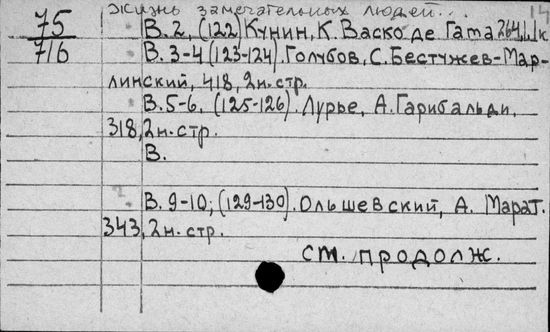 Жизнь замечательных людей... 14
75
716
В. 2, (122) Кунин, К. Васко де Гама 264, 1 к
В. 3-4 (123-124). Голубов, С. Бестужев-Мар-
линский, 418, 2н. стр.
В. 5-6, (125-126). Лурье, А. Гарибальди,
318, 2н. стр.
В.
В. 9-10; (129-130). Ольшевский, А. Марат.
343, 2н. стр.
см. продолж.